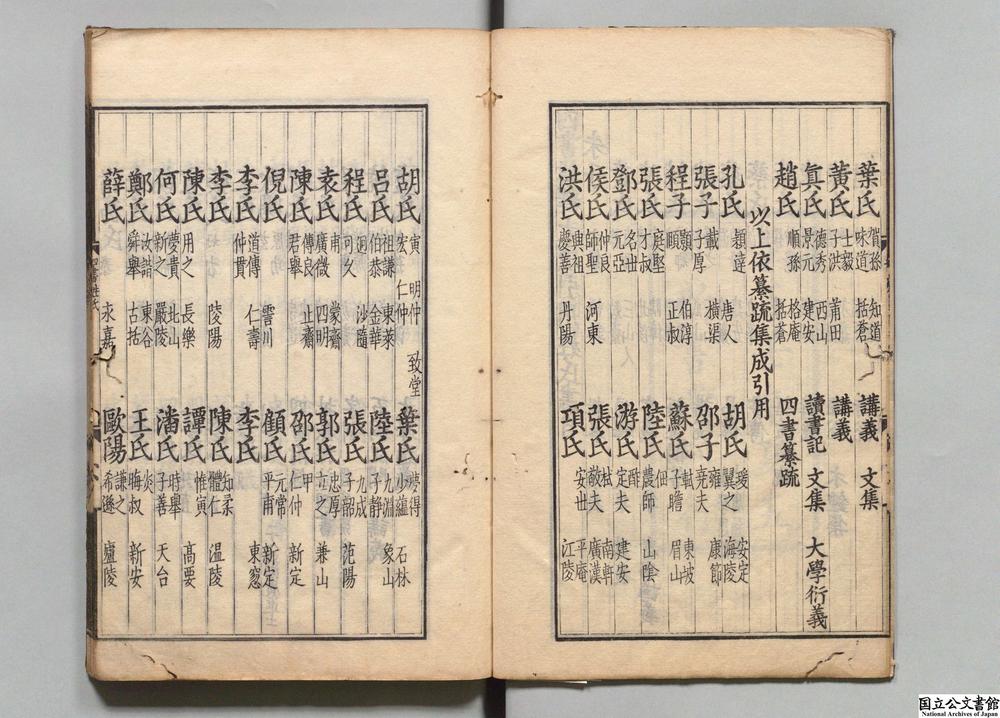 葉氏 賀孫 味道 知道 括蒼 講義 文集
黃氏 士毅 子洪 莆田 講義
眞氏 德秀 景元 西山 建安 讀書記 文集 大學衍義
趙氏 順孫 格庵 括蒼 四書纂疏
以上依纂疏集成引用
孔氏 穎達 唐人 胡氏 瑗 翼之 安定 海陵
張子 載 子厚 橫渠 邵子 雍 堯夫 康節
程子 顥 頤 伯淳 正叔 蘇氏 軾 子瞻 東坡 眉山
張氏 庭堅 才叔 陸氏 佃 農師 山陰
鄧氏 名世 元亞 游氏 酢 定夫 建安
侯氏 仲良 師聖 河東 張氏 栻 敬夫 南軒 廣漢
洪氏 興祖 慶善 丹陽 項氏 安世 平庵 江陵
胡氏 寅 宏 明仲 仁仲 致堂 葉氏 夢得 少蘊 石林
呂氏 祖謙 伯恭 東萊 金華 陸氏 九淵 子靜 象山
程氏 迥 可久 沙隨 張氏 九成 子韶 范陽
袁氏 甫 廣微 蒙齋 四明 郭氏 忠厚 立之 兼山
陳氏 傅良 君舉 止齋 邵氏 甲 仁仲 新定
倪氏 霅川 顧氏 元常 平甫 新定
李氏 道傳 仲貫 仁壽 李氏 東窓
李氏 陵陽 陳氏 知柔 體仁 温陵
陳氏 用之 長樂 譚氏 惟寅 高要
何氏 夢貴 新之 北山 嚴陵 潘氏 時舉 子善 天台
鄭氏 汝諧 舜舉 東谷 古括 王氏 炎 晦叔 新安
薛氏 永嘉 歐陽 謙之 希遜 廬陵
国立公文書館
National Archives of Japan